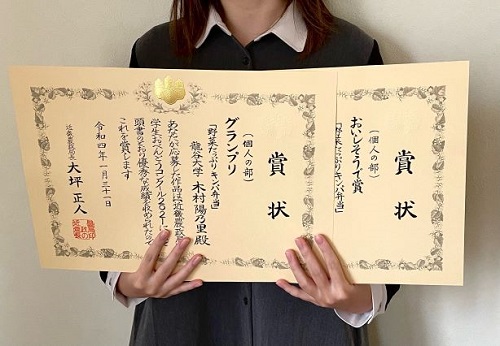 賞状
(個人の部)
おいしそうで賞
「野菜たっぷりキンパ弁当」
賞状
(個人の部)
グランプリ
「野菜たっぷりキンパ弁当」
龍谷大学 木村陽乃里殿
あなたが応募した作品は近畿農政
学生おべんとうコンクール2021に
頭書のとおり優秀な成績を収められたの
これを賞します
令和四年一月三十一日
近畿農政局長 大坪正人